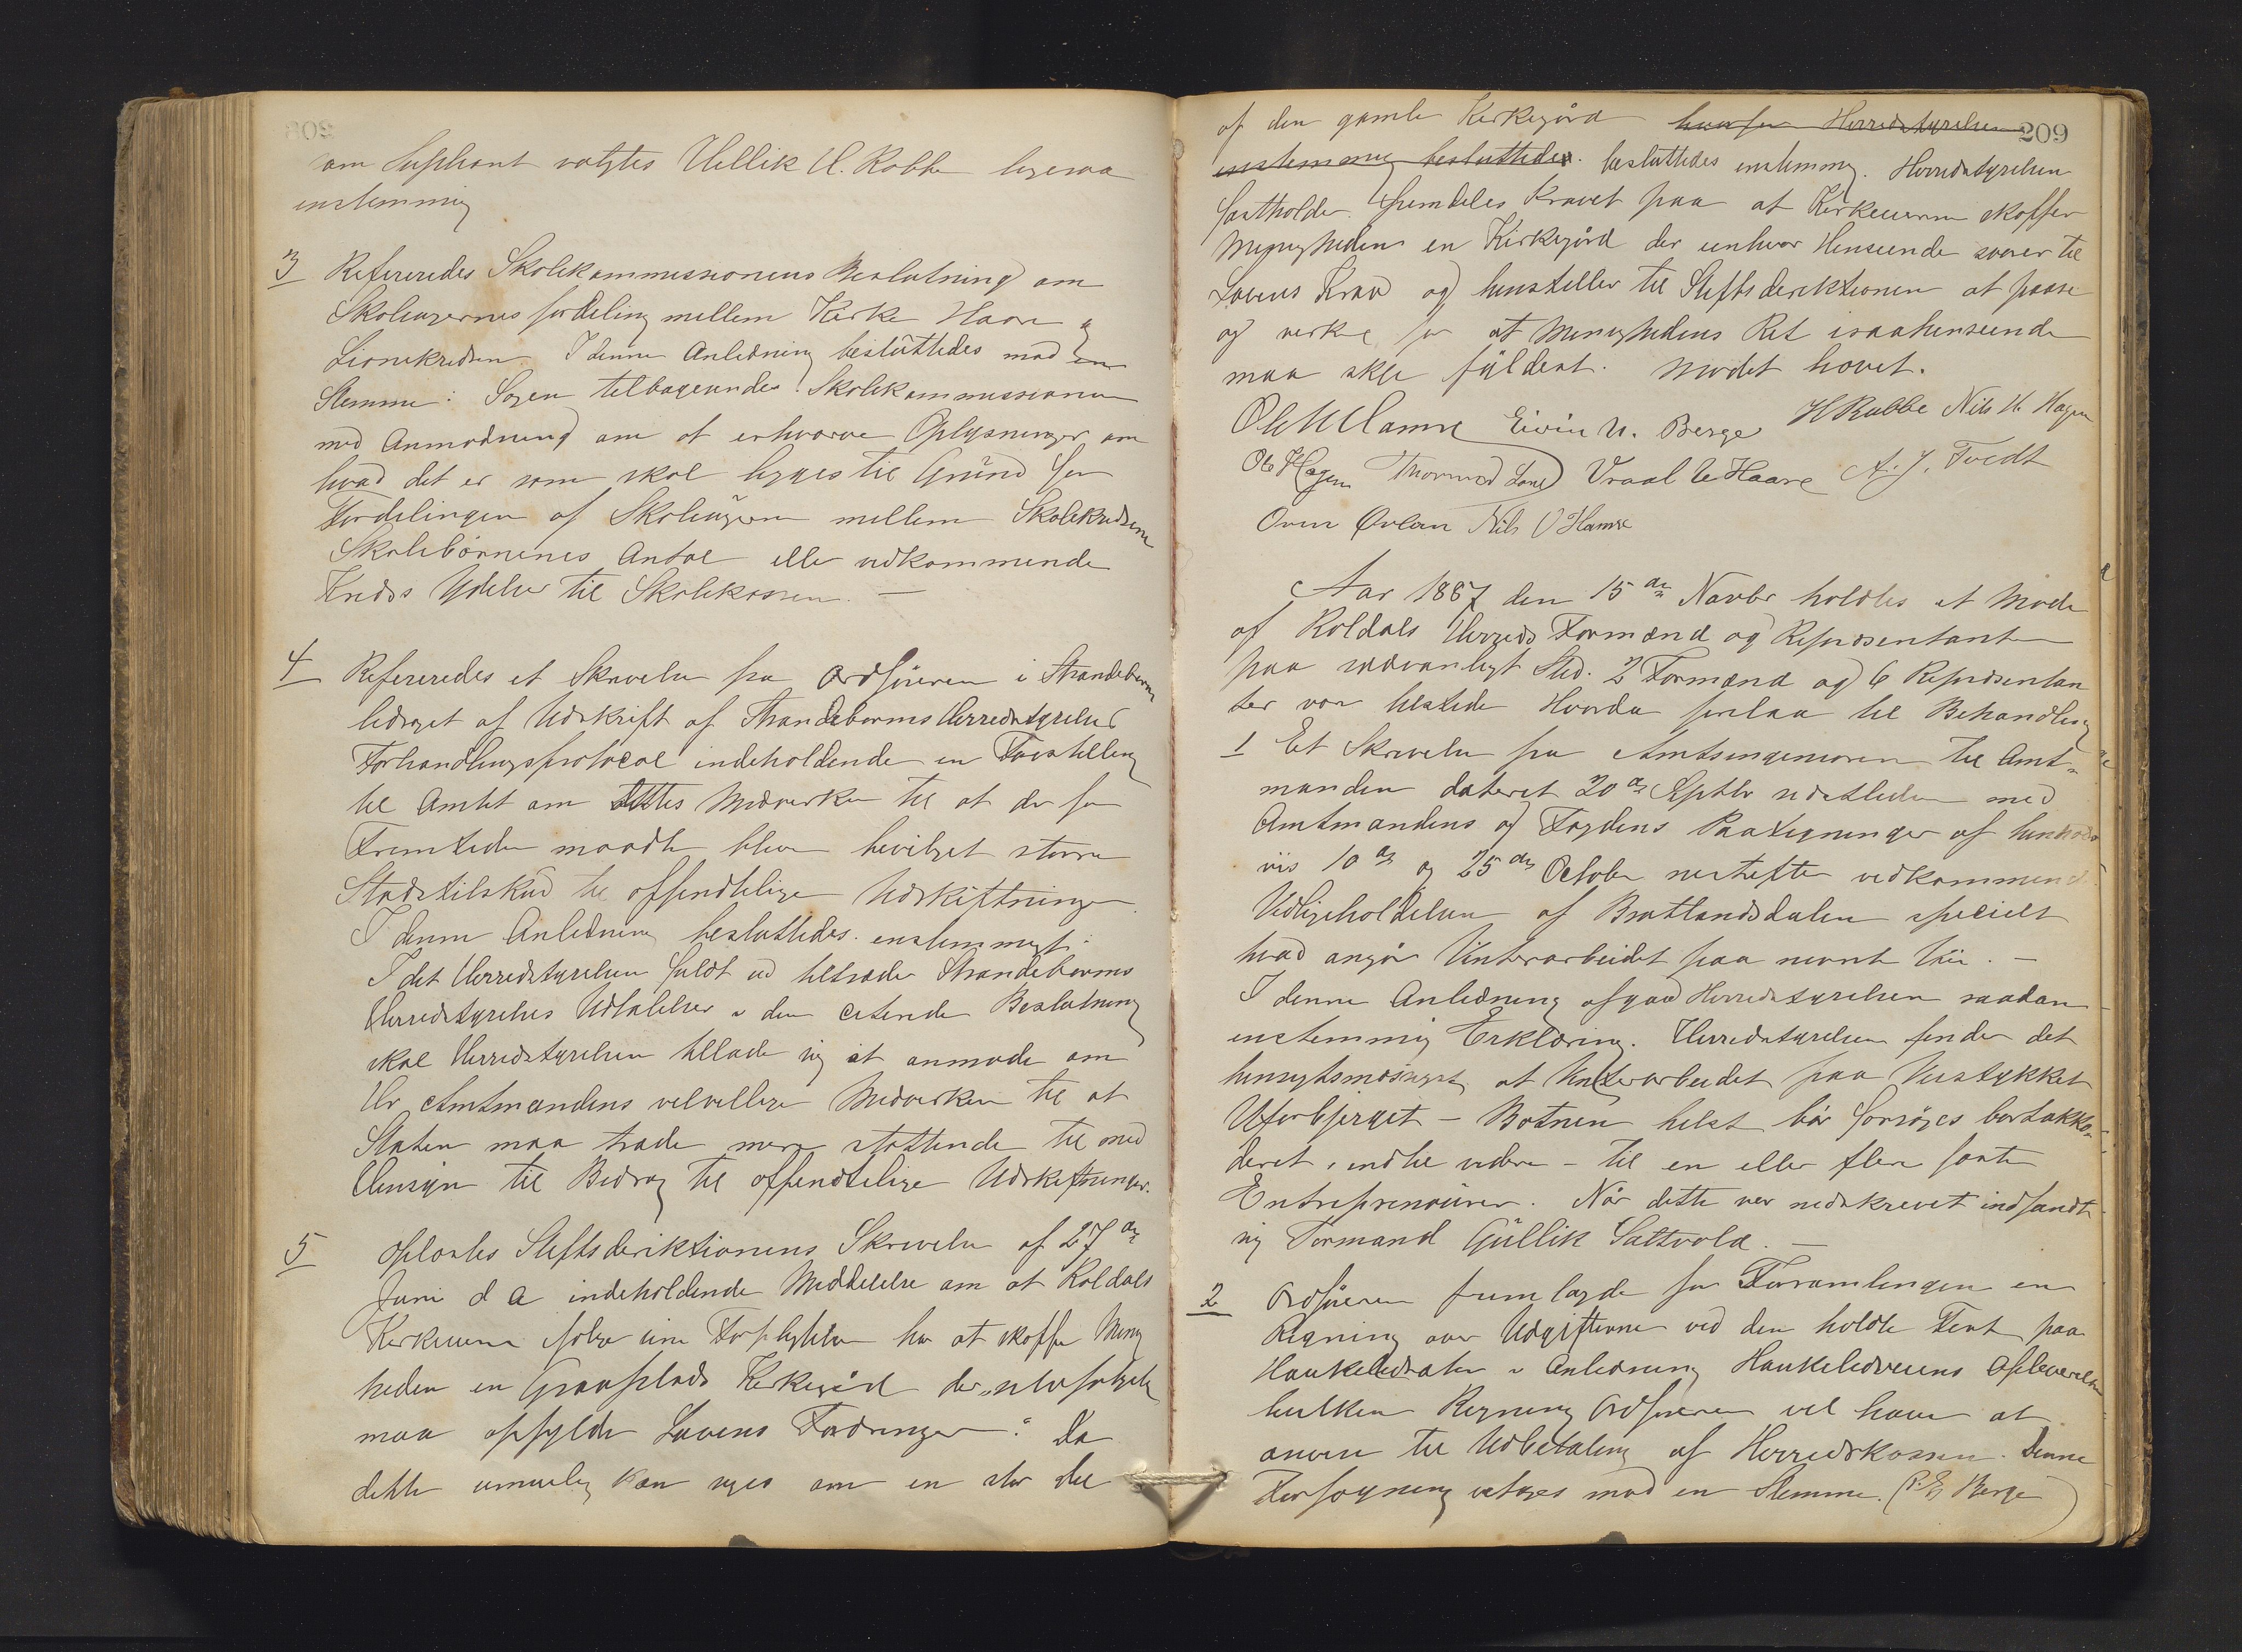 som Supliant valgtes Hellik H. Rabbe ligesaa
enstemmig
3 Refereredes Skolekommissionens Beslutning om
Skoleugernes fordeling mellem Kirke Haare og
Lionekredsen. I denne Anledning besluttedes mod en
Stemme: Sagen tilbagesendes Skolekommissionen
med Anmodning om at erhverve Oplysninger om
hvad det er som skal lægges til Grund for
Fordelingen af Skoleugerne mellem Skolekredsene
Skolebørnenes Antal eller vedkommende
Kreds Ydelser til Skolekassen. —
4 Refereredes et Skrivelse fra Ordføreren i Strandebarm
ledsaget af Udskrift af Strandebarms Herredstyrelses
Forhandlingsprotocol indeholdende en Forestilling
til Amtet om dettes Medvirken til at der for
Fremtiden maatte blive bevilget større
Stadstilskud til offendtlige Udskiftninger.
I denne Anledning besluttedes enstemmigt:
I det Herredstyrelsen fuldt ud tiltræder Strandebarms
Herredstyrelses Udtalelser i den citerede Beslutning
skal Herredstyrelsen tillade sig at anmode om
Hr Amtmandens velvillige Medvirken til at
Staten maa træde mere støttende til med
Hensyn til Bidrag til offendtlige Udskiftninger.
5 Oplæstes Stiftsdirektionens Skrivelse af 27de
Juni d A indeholdende Meddelelse om at Røldals
Kirkeeiere ifølge sine Forpligtelser har at skaffe Menig
heden en Gravplads Kirkegård der "selvfølgelig
maa opfylde Lovens Fordringer". Da
dette umuelig kan siges om en stor del
209
af den gamle Kirkegård hvorfor Herredstyrelsen
enstemmig besluttedes. besluttedes enstemmig. Herredstyrelsen
fastholder fremdeles Kravet paa at Kirkeeierne skaffer
Menigheden en Kirkegård der i enhver Henseende svarer til
Lovens Krav og henstiller til Stiftsdirektionen at paase
og virke for at Menighedens Ret i saa henseende
maa skje fyldest. Mødet hævet.
Ole H Hamre Eivin N. Berge H Rabbe Nils H. Hagen
Ole Hagen Thormod Lone Vraal E Haare A. J. Tvedt
Oven Øvlan Nils O Hamre
Aar 1887 den 15de Novbr holdtes et Møde
af Røldals Herreds Formænd og Repræsentanter
paa sædvanligt Sted. 2 Formænd og 6 Repræsentan
ter var tilstede Hvorda forelaa til Behandling
1 Et Skrivelse fra Amtsingeniøren til Amt-
manden dateret 20de Septbr sidstleden med
Amtmandens og Fogdens Paategninger af henholds
vis 10de og 25de October nestefter vedkommende
Vedligeholdelsen af Bratlandsdalen specielt
hvad angår Vinterarbeidet paa nevnte Vei. —
I denne Anledning afgav Herredstyrelsen saadan
enstemmig Erklæring. Herredstyrelsen finder det
hensigtsmæssigst at Vinterarbeidet paa Veistykket
Uførbjerget — Botnen helst bør forsøges bortakko-
deret, indtil videre — til en eller flere faste
Entreprenøurer. Når dette var nedskrevet indfandt
sig Formand Gullik Sattvold. —
2 Ordføreren fremlagde for Forsamlingen en
Regning over Udgifterne ved den holdte Fest paa
Haukelidsæter i Anledning Haukelidveiens Aflevering
hvilken Regning Ordføreren vil have at
anvise til Udbetaling af Herredskassen. Denne
Forføyning vetoges mod en Stemme. (P. E. Berge)